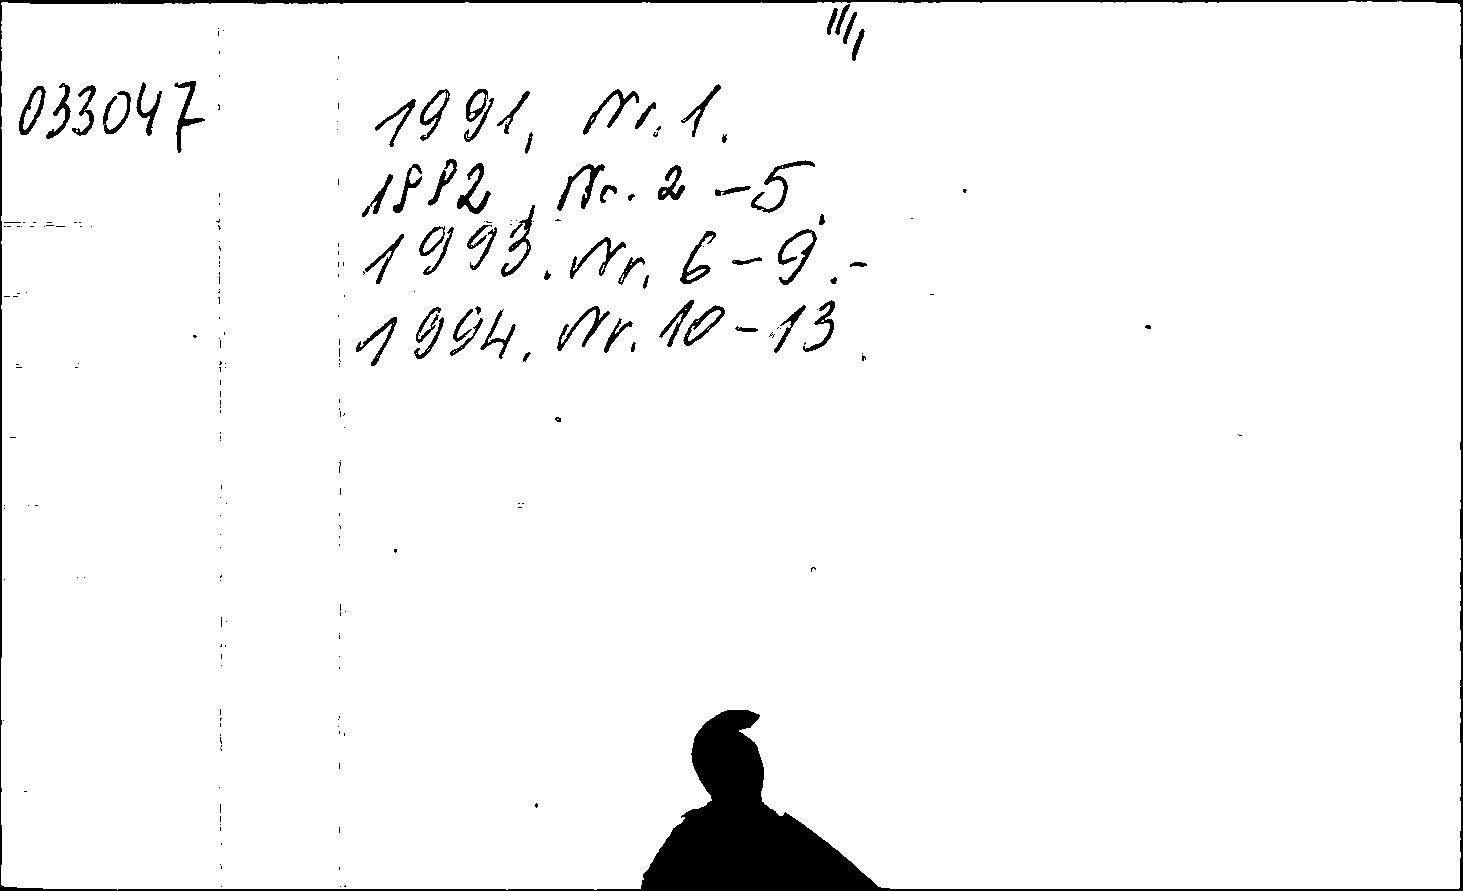 033047 1991, Nr. 1.
1992, Nr. 2-5.
1993. Nr. 6-9.-
1994. Nr. 10-13.